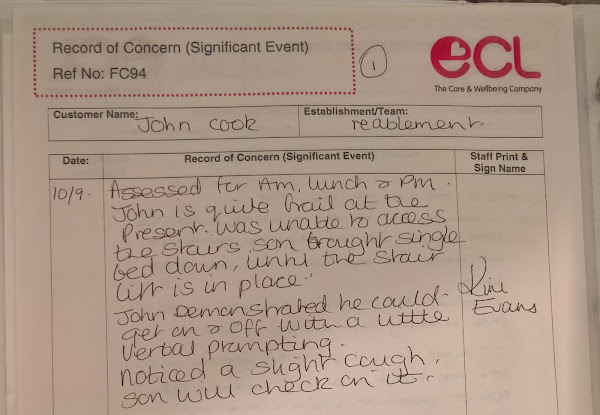 Record of Concern (Significant Event)
Ref No: FC94
1
eCL
The Care & Wellbeing Company
Customer Name: John Cook
Establishment/Team: reablement.
Date:
Record of Concern (Significant Event)
Staff Print & Sign Name
10/9. Assessed for Am, lunch & Pm.
John is quite frail at the
Present. was unable to access
the stairs, son brought single
bed down, until the stair
lift is in place.
John Demonstrated he could
get on & off with a little
verbal prompting.
noticed a slight cough,
son will check on it.
Evans